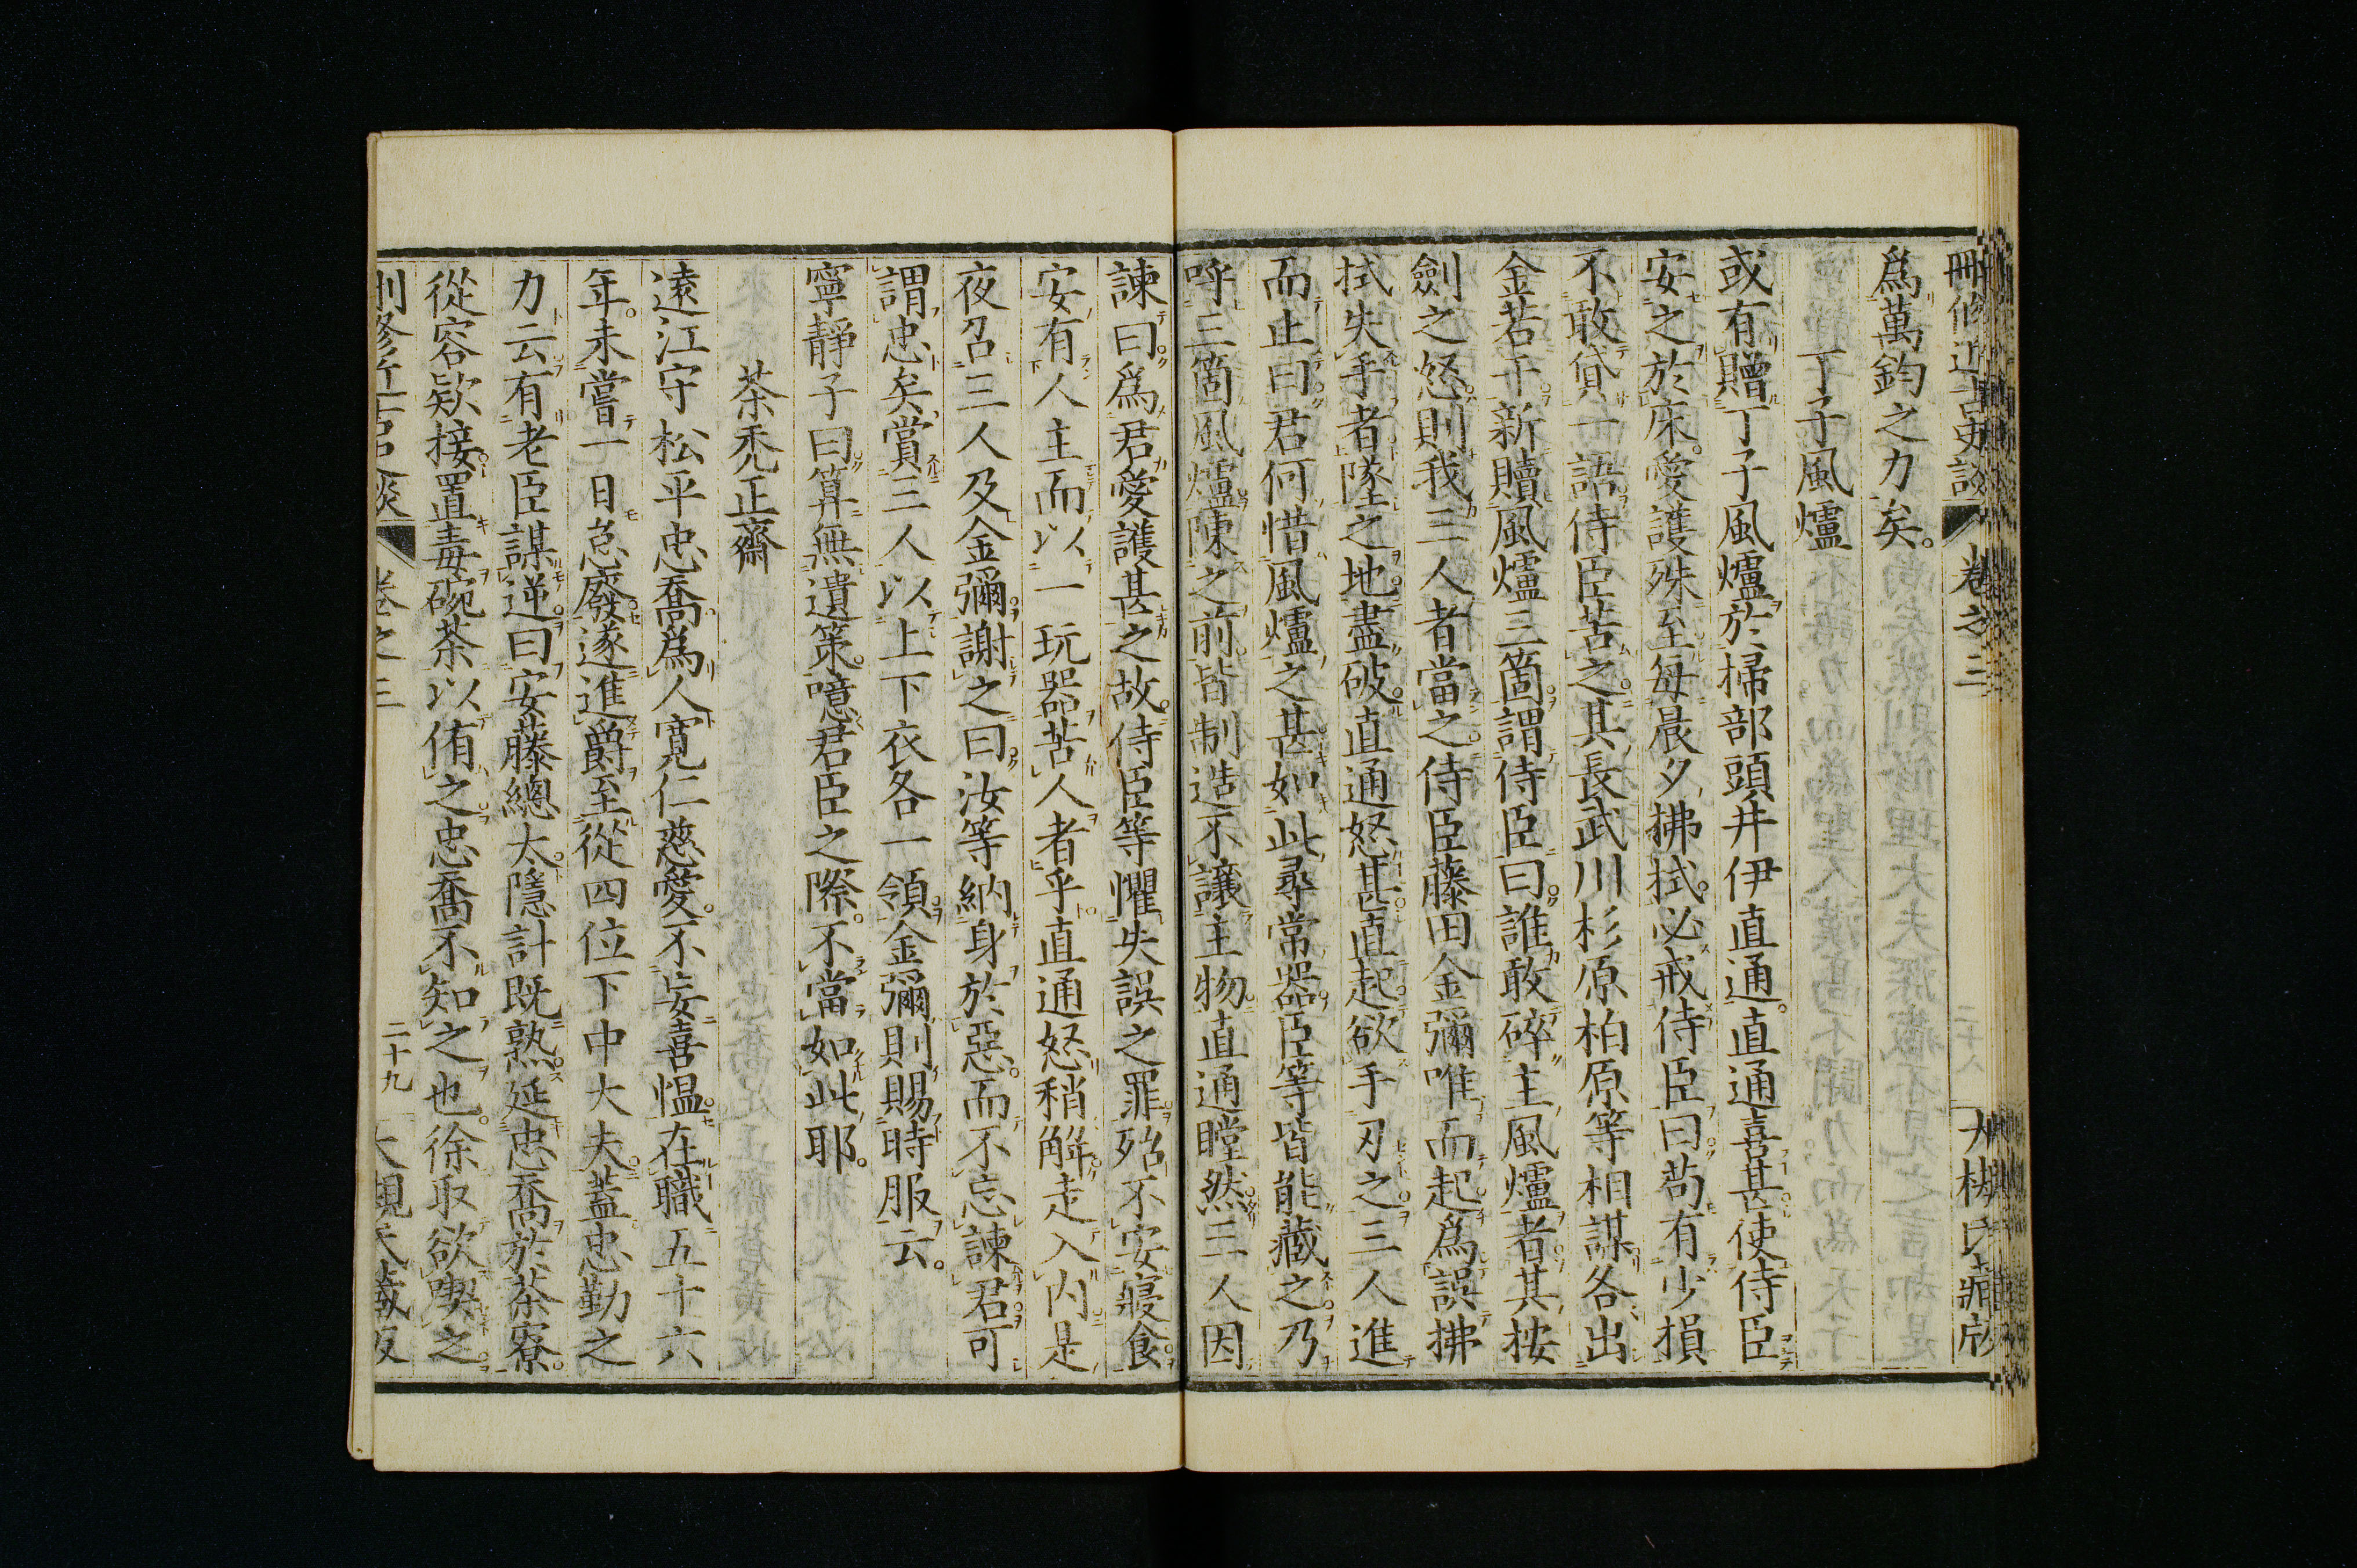 刪修近古史談 卷之三 大槻氏藏版
爲萬鈞之力矣。
丁子風爐
或有贈丁子風爐於掃部頭井伊直通。直通喜甚使侍臣
安之於床。愛護殊至每晨夕拂拭。必戒侍臣曰苟有少損
不敢貸一語侍臣苦之。其長武川杉原柏原等相謀各出
金若干新贖風爐三箇。謂侍臣曰。誰敢碎主風爐者。其按
劍之怒。則我三人者當之。侍臣藤田金彌唯而起。爲誤拂
拭失手者墜之地盡破。直通怒甚。直起。欲手刃之。三人進
而止曰君何惜風爐之甚如此尋常器。臣等皆能藏之。乃
呼三箇風爐陳之前。皆制造不讓主物。直通瞠然。三人因
諫曰。爲君愛護甚之故。侍臣等懼失誤之罪殆不安寢食。
安有人主而以一玩器苦人者乎直通怒稍解。走入內。是
夜召三人及金彌。謝之曰。汝等納身於惡。而不忘諫君。可
謂忠矣。賞三人以上下衣各一領。金彌則賜時服云。
寧靜子曰。算無遺策。噫君臣之際。不當如此耶。
茶禿正齋
遠江守松平忠喬。爲人寬仁慈愛。不妄喜慍。在職五十六
年。未嘗一日怠廢。遂進爵至從四位下中大夫。蓋忠勤之
力云有老臣謀逆。曰安藤總太。隱計既熟。延忠喬於茶寮。
從容款接。置毒碗茶以侑之。忠喬不知之也。徐取欲喫之。
刪修近古史談 卷之三 二十九 大槻氏藏版